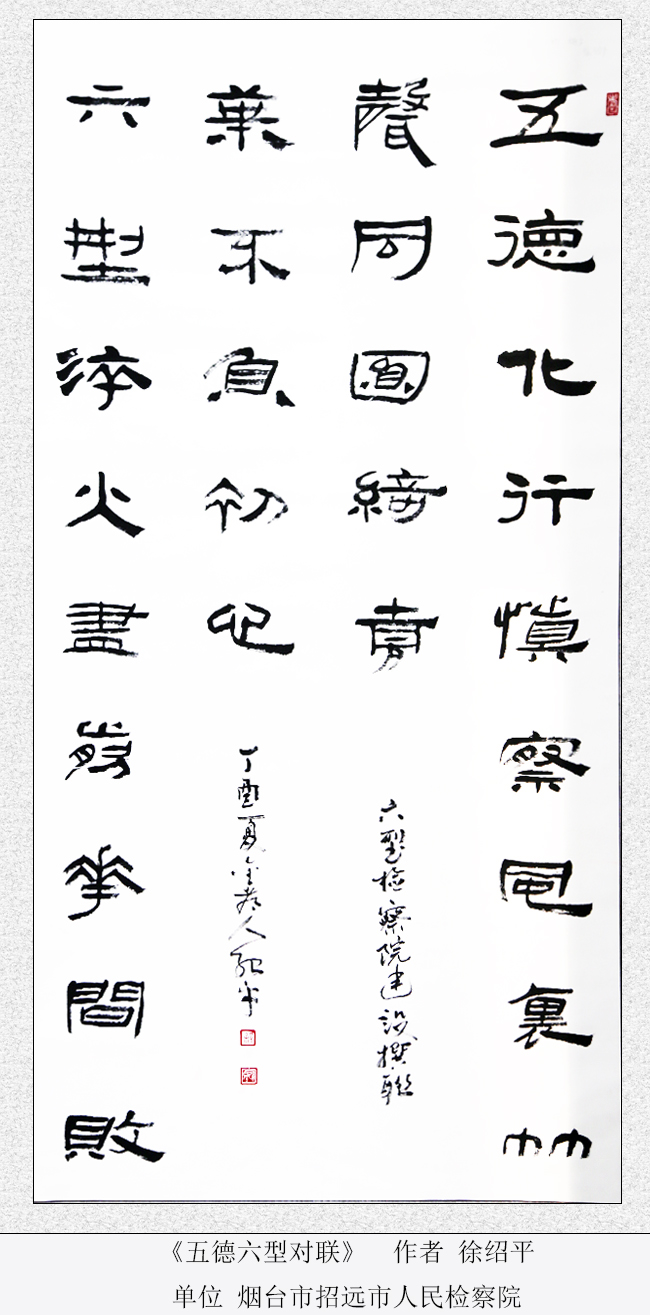 五德化行慎察風裏竹
聲同圓綺夢
六型檢察院建設撰聯
六型淬火盡剪華間敗
葉不負初心
丁酉夏金人紹平
《五德六型对联》 作者 徐绍平
单位 烟台市招远市人民检察院